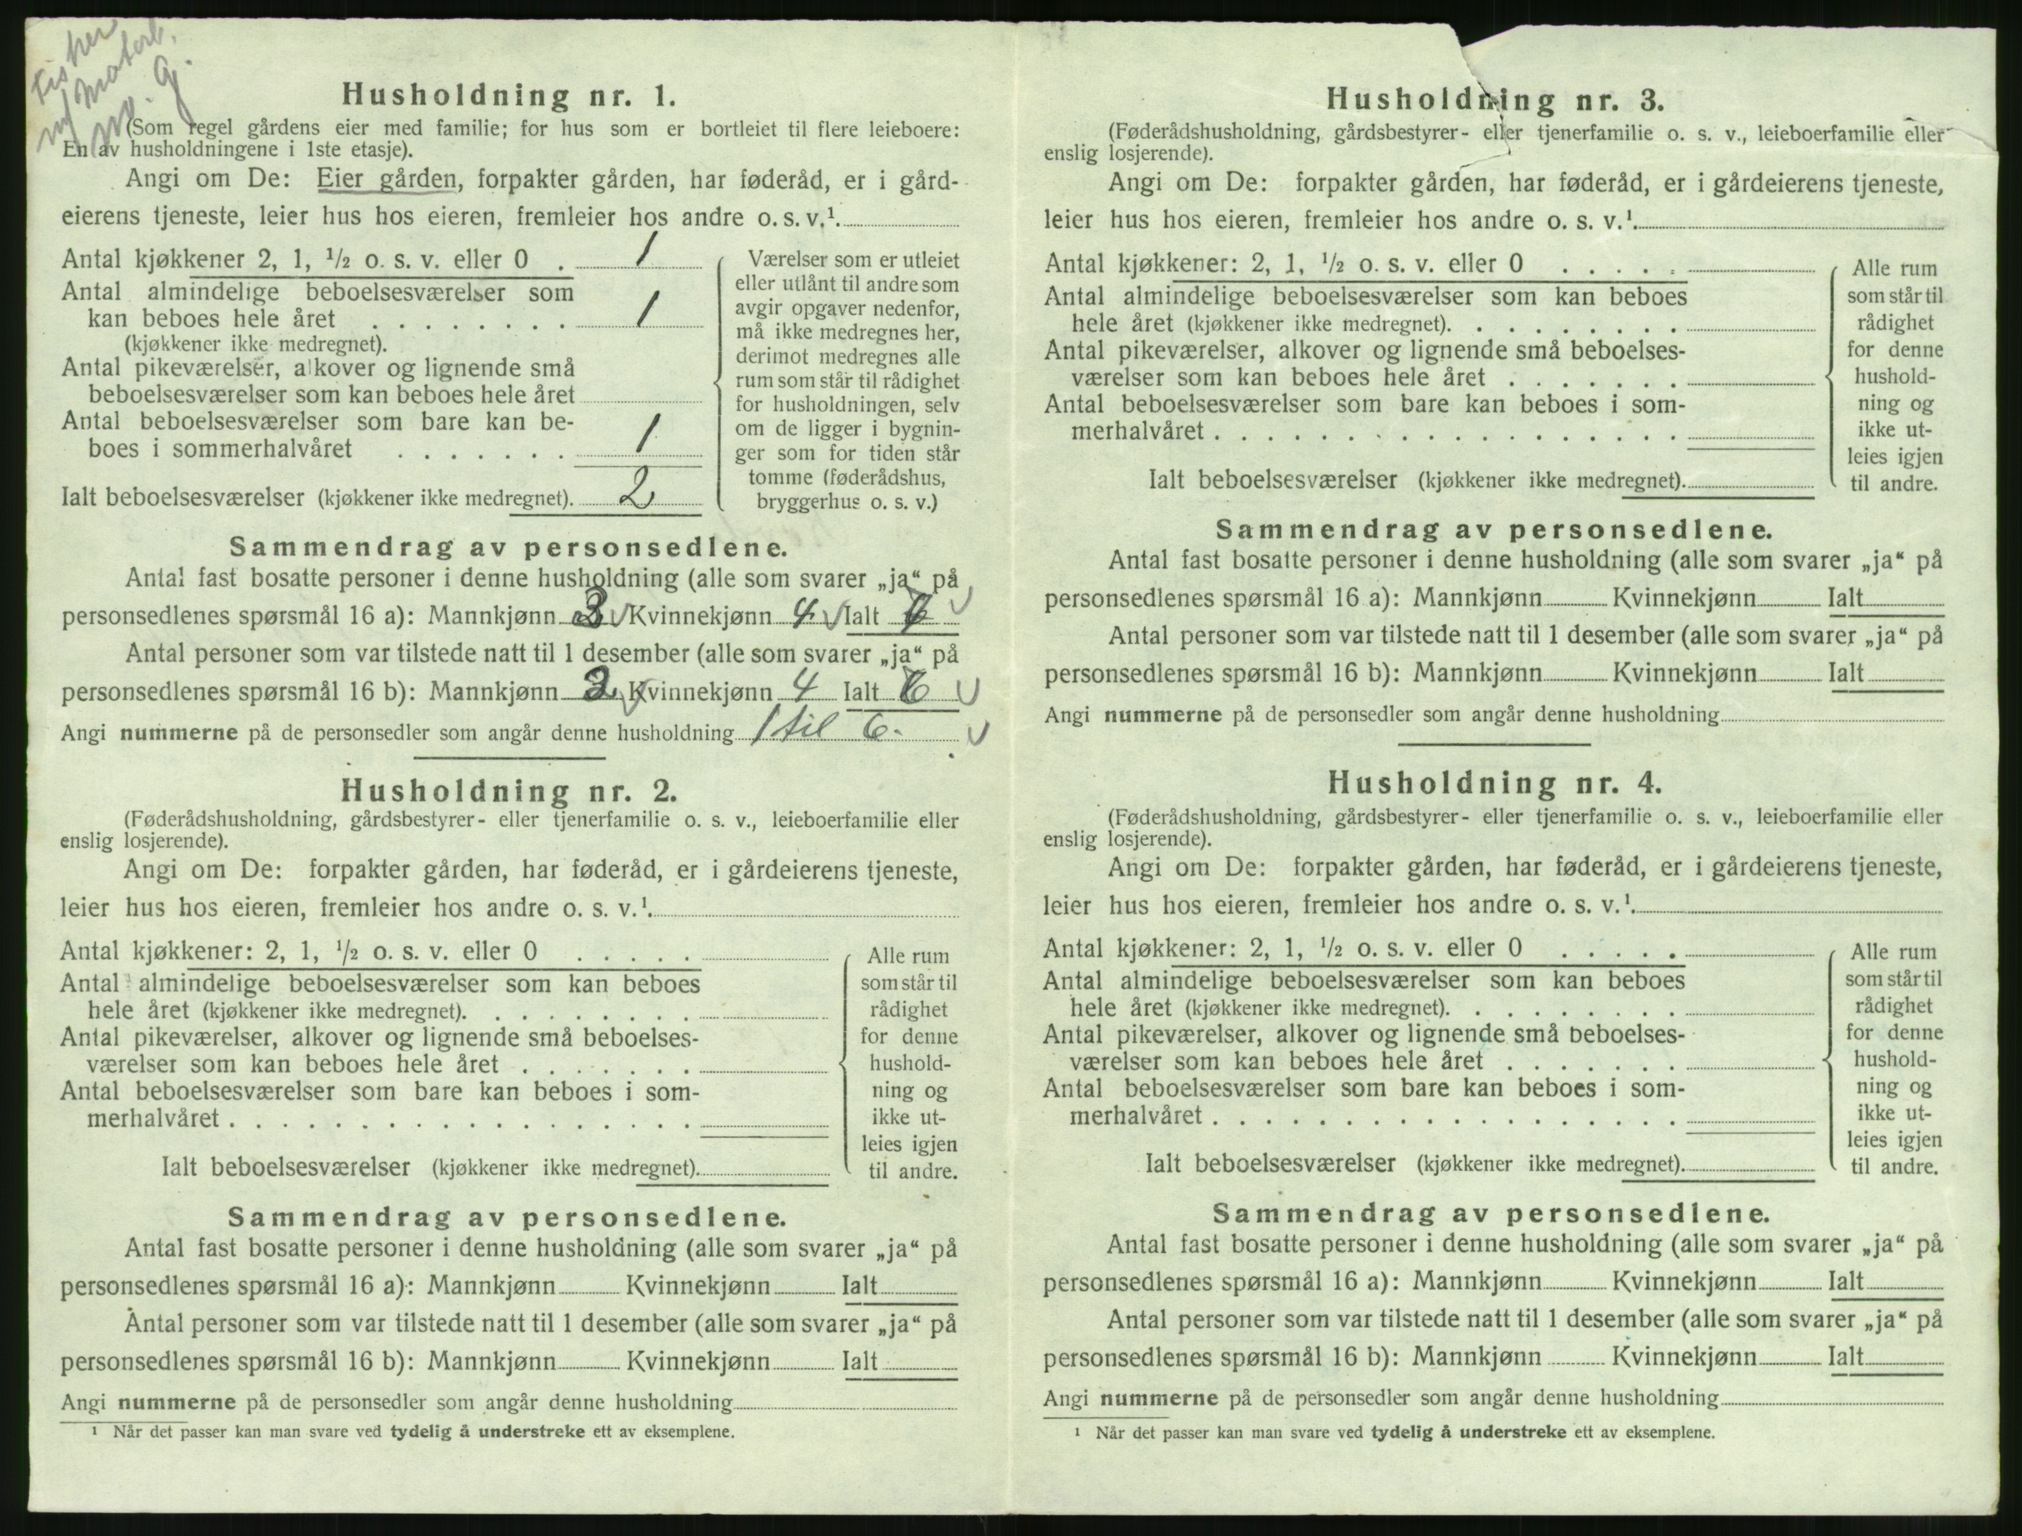 Fisker
m/ Motorb.
m. g.
Husholdning nr. 1.
(Som regel gårdens eier med familie; for hus som er bortleiet til flere leieboere:
En av husholdningene i 1ste etasje).
Angi om De: Eier gården, forpakter gården, har føderåd, er i gård-
eierens tjeneste, leier hus hos eieren, fremleier hos andre o. s. v.¹.
Antal kjøkkener 2, 1, ½ o. s. v. eller 0 . 1
Antal almindelige beboelsesværelser som
kan beboes hele året . . . . . . . . 1
(kjøkkener ikke medregnet).
Antal pikeværelser, alkover og lignende små
beboelsesværelser som kan beboes hele året
Antal beboelsesværelser som bare kan be-
boes i sommerhalvåret . . . . . . . 1
Ialt beboelsesværelser (kjøkkener ikke medregnet). 2
Værelser som er utleiet
eller utlånt til andre som
avgir opgaver nedenfor,
må ikke medregnes her,
derimot medregnes alle
rum som står til rådighet
for husholdningen, selv
om de ligger i bygnin-
ger som for tiden står
tomme (føderådshus,
bryggerhus o. s. v.)
Sammendrag av personsedlene.
Antal fast bosatte personer i denne husholdning (alle som svarer „ja“ på
personsedlenes spørsmål 16 a): Mannkjønn Kvinnekjønn 4 Ialt 6
Antal personer som var tilstede natt til 1 desember (alle som svarer „ja“ på
personsedlenes spørsmål 16 b): Mannkjønn 2 Kvinnekjønn 4 Ialt 6
Angi nummerne på de personsedler som angår denne husholdning 1 til 6.
Husholdning nr. 2.
(Føderådshusholdning, gårdsbestyrer- eller tjenerfamilie o. s. v., leieboerfamilie eller
enslig losjerende).
Angi om De: forpakter gården, har føderåd, er i gårdeierens tjeneste,
leier hus hos eieren, fremleier hos andre o. s. v.¹.
Antal kjøkkener: 2, 1, ½ o. s. v. eller 0 . . . . .
Antal almindelige beboelsesværelser som kan beboes
hele året (kjøkkener ikke medregnet). . . . . . . . .
Antal pikeværelser, alkover og lignende små beboelses-
værelser som kan beboes hele året . . . . . . .
Antal beboelsesværelser som bare kan beboes i som-
merhalvåret . . . . . . . . . . . . . . . . . .
Ialt beboelsesværelser (kjøkkener ikke medregnet).
Alle rum
som står til
rådighet
for denne
hushold-
ning og
ikke ut-
leies igjen
til andre.
Sammendrag av personsedlene.
Antal fast bosatte personer i denne husholdning (alle som svarer „ja“ på
personsedlenes spørsmål 16 a): Mannkjønn Kvinnekjønn Ialt
Antal personer som var tilstede natt til 1 desember (alle som svarer „ja“ på
personsedlenes spørsmål 16 b): Mannkjønn Kvinnekjønn Ialt
Angi nummerne på de personsedler som angår denne husholdning
¹ Når det passer kan man svare ved tydelig å understreke ett av eksemplene.
Husholdning nr. 3.
(Føderådshusholdning, gårdsbestyrer- eller tjenerfamilie o. s. v., leieboerfamilie eller
enslig losjerende).
Angi om De: forpakter gården, har føderåd, er i gårdeierens tjeneste,
leier hus hos eieren, fremleier hos andre o. s. v.¹.
Antal kjøkkener: 2, 1, ½ o. s. v. eller 0 . . . . .
Antal almindelige beboelsesværelser som kan beboes
hele året (kjøkkener ikke medregnet). . . . . . . . .
Antal pikeværelser, alkover og lignende små beboelses-
værelser som kan beboes hele året . . . . . . .
Antal beboelsesværelser som bare kan beboes i som-
merhalvåret . . . . . . . . . . . . . . . . . .
Ialt beboelsesværelser (kjøkkener ikke medregnet).
Alle rum
som står til
rådighet
for denne
hushold-
ning og
ikke ut-
leies igjen
til andre.
Sammendrag av personsedlene.
Antal fast bosatte personer i denne husholdning (alle som svarer „ja“ på
personsedlenes spørsmål 16 a): Mannkjønn Kvinnekjønn Ialt
Antal personer som var tilstede natt til 1 desember (alle som svarer „ja“ på
personsedlenes spørsmål 16 b): Mannkjønn Kvinnekjønn Ialt
Angi nummerne på de personsedler som angår denne husholdning
Husholdning nr. 4.
(Føderådshusholdning, gårdsbestyrer- eller tjenerfamilie o. s. v., leieboerfamilie eller
enslig losjerende).
Angi om De: forpakter gården, har føderåd, er i gårdeierens tjeneste,
leier hus hos eieren, fremleier hos andre o. s. v.¹.
Antal kjøkkener: 2, 1, ½ o. s. v. eller 0 . . . . .
Antal almindelige beboelsesværelser som kan beboes
hele året (kjøkkener ikke medregnet). . . . . . . . .
Antal pikeværelser, alkover og lignende små beboelses-
værelser som kan beboes hele året . . . . . . .
Antal beboelsesværelser som bare kan beboes i som-
merhalvåret . . . . . . . . . . . . . . . . . .
Ialt beboelsesværelser (kjøkkener ikke medregnet).
Alle rum
som står til
rådighet
for denne
hushold-
ning og
ikke ut-
leies igjen
til andre.
Sammendrag av personsedlene.
Antal fast bosatte personer i denne husholdning (alle som svarer „ja“ på
personsedlenes spørsmål 16 a): Mannkjønn Kvinnekjønn Ialt
Antal personer som var tilstede natt til 1 desember (alle som svarer „ja“ på
personsedlenes spørsmål 16 b): Mannkjønn Kvinnekjønn Ialt
Angi nummerne på de personsedler som angår denne husholdning
¹ Når det passer kan man svare ved tydelig å understreke ett av eksemplene.